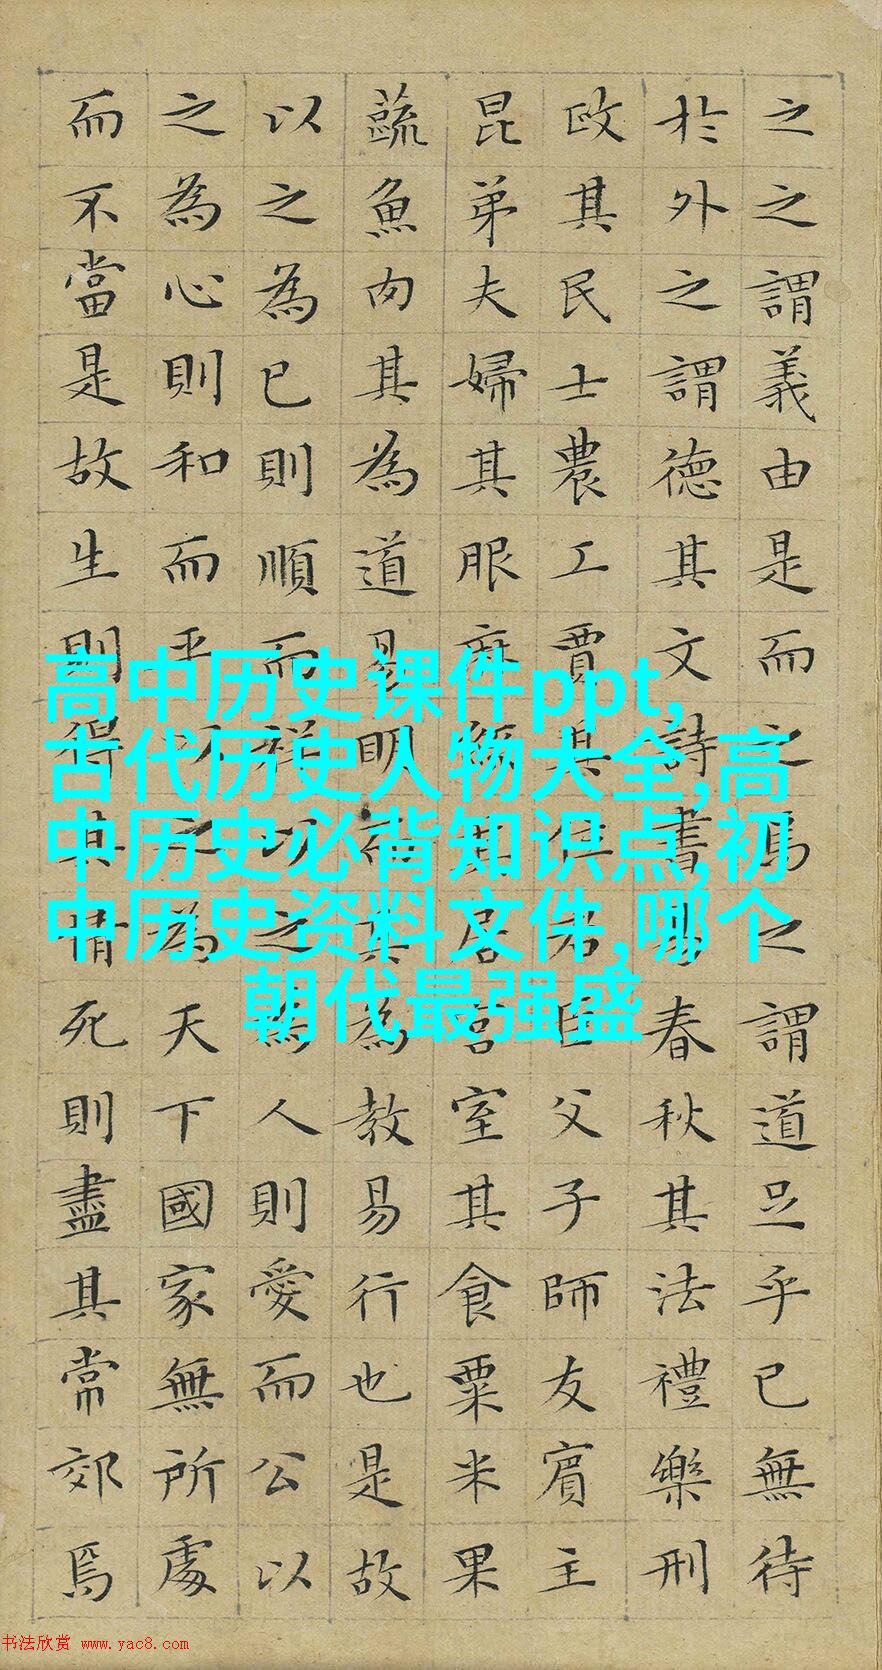 之之謂義由是而之焉之謂道足乎已無待
於外之謂德其文詩書易春秋其法禮樂刑
政其民士農工賈其位君臣父子師友賓主
昆弟夫婦其服麻絲其居宮室其食粟米果
蔬魚肉其為道易明而其為教易行也是故
以之為已則順而祥以之為人則愛而公以
之為心則和而平以之為天下國家無所處
而不當是故生則得其情死則盡其常郊焉
高中历史课件ppt,
古代历史人物大全,高
中历史必背知识点,初
中历史资料文件,哪个
朝代最强盛
书法欣赏 www.yac8.com